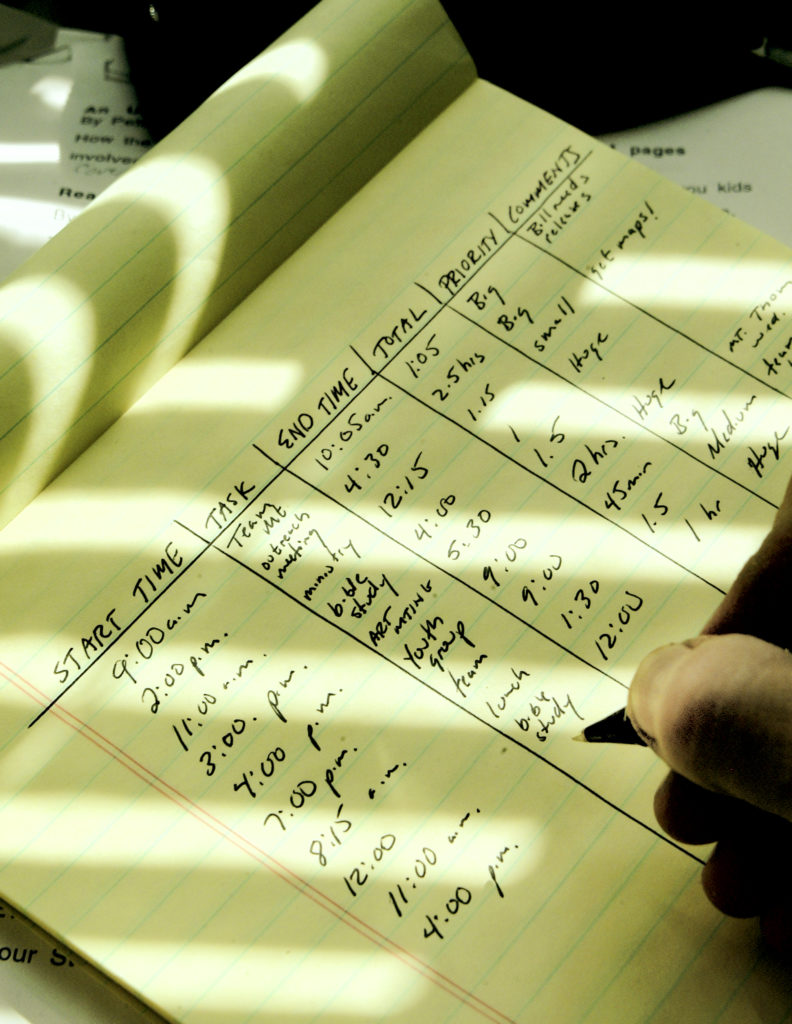 START TIME | TASK | END TIME | TOTAL | PRIORITY | COMMENTS
9:00 a.m Team Mt 10:05 a.m. 1:05 Big Bill needs releases
2:00 p.m. outreach meeting 4:30 2.5 hrs Big
11:00 a.m. ministry 12:15 1.15 small get maps!
3:00. p.m. bible study 4:00 1 Huge
4:00 p.m. ART MTING 5:30 1.5
7:00 p.m. Youth group 9:00 2 hrs. Huge
8:15 a.m. team 9:00 45 min Big
12:00 lunch 1:30 1.5 Medium
11:00 a.m. bible study 12:00 1 hr Huge
4:00 p.m.
MT.
wed.
team
By
How the
involved
pages
you kids
our S.